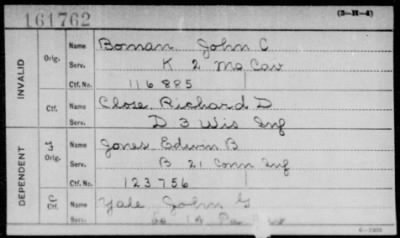 161762
(3-H-4)
INVALID
Orig. Name Boman John C
Serv. K 2 Mo Cav
Ctf. No. 116885
Ctf. Name Close, Richard D
Serv. D 3 Wis Inf
DEPENDENT
Orig. Name Jones Edwin B
Serv. B 21 Conn Inf
Ctf. No. 123756
C Ctf. Name Yale John G
Serv. 14 Pa